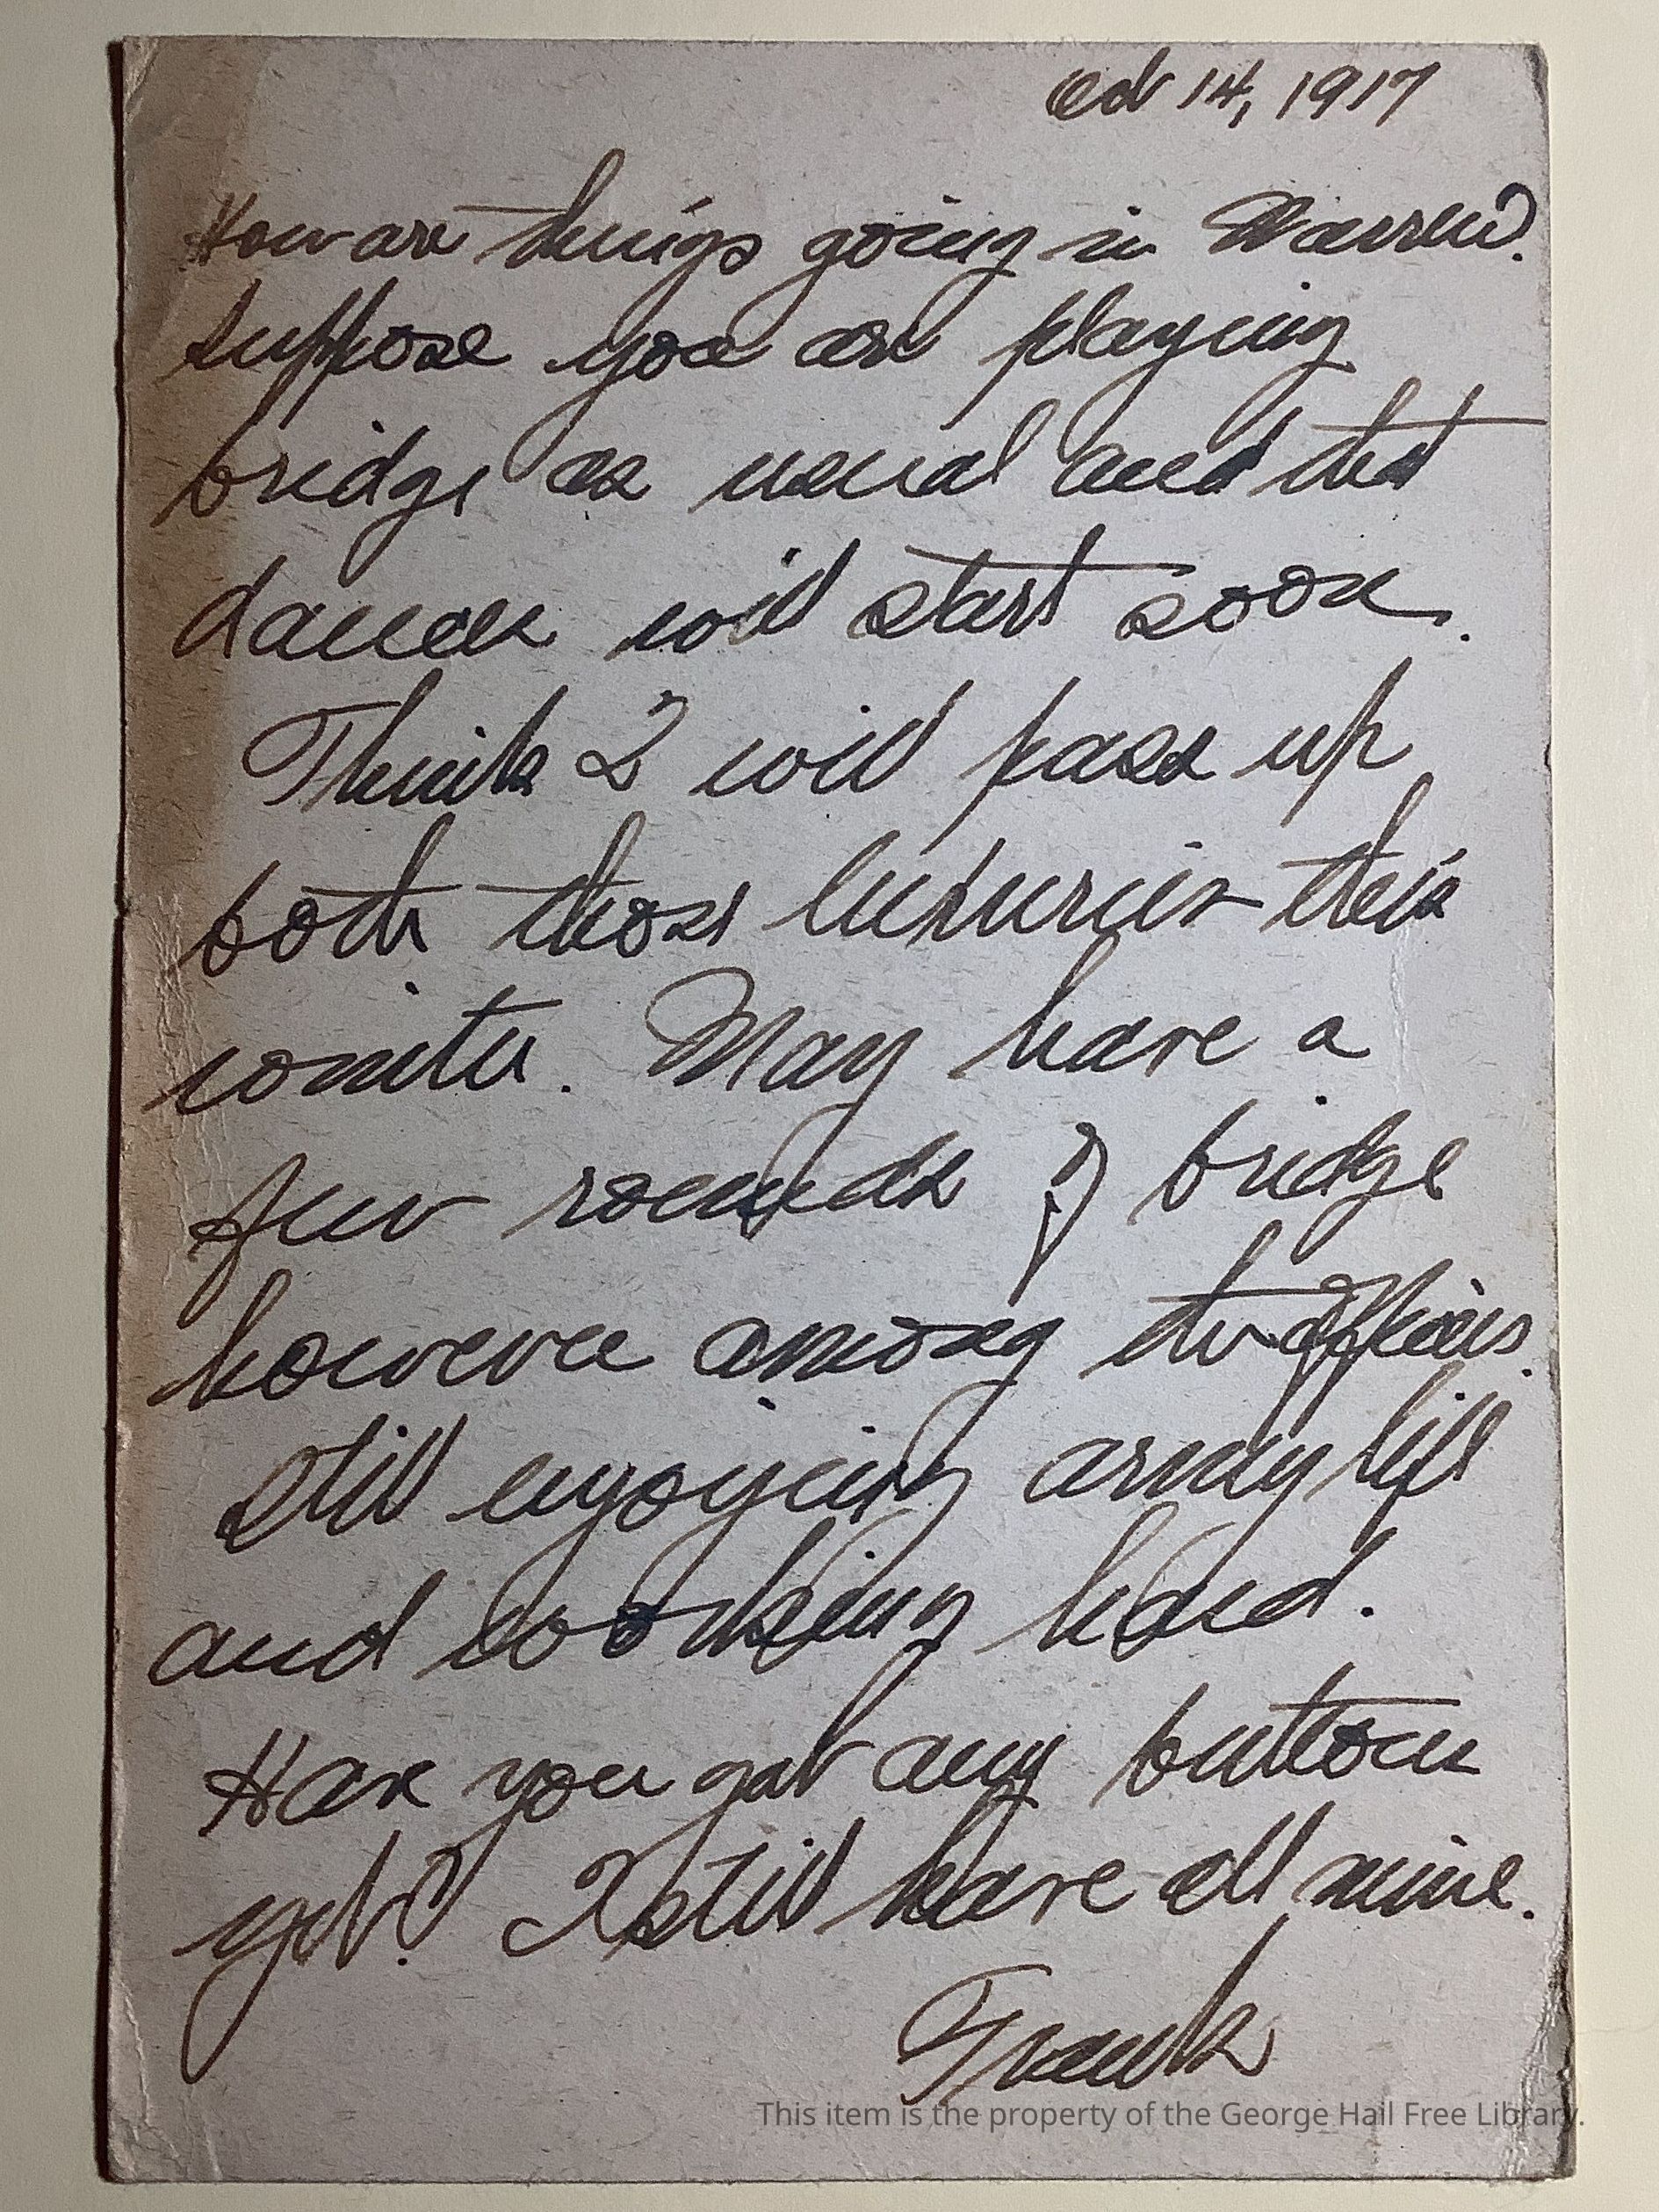 Oct 14, 1917
How are things going in Warren?
Suppose you are playing
bridge as usual and that
dances will start soon.
Think I will pass up
both those luxuries this
winter. May have a
few rounds of bridge
however among the officers.
Still enjoying army life
and working hard.
Have you got any buttons
yet? I still have all mine.
Frank
This item is the property of the George Hail Free Library.